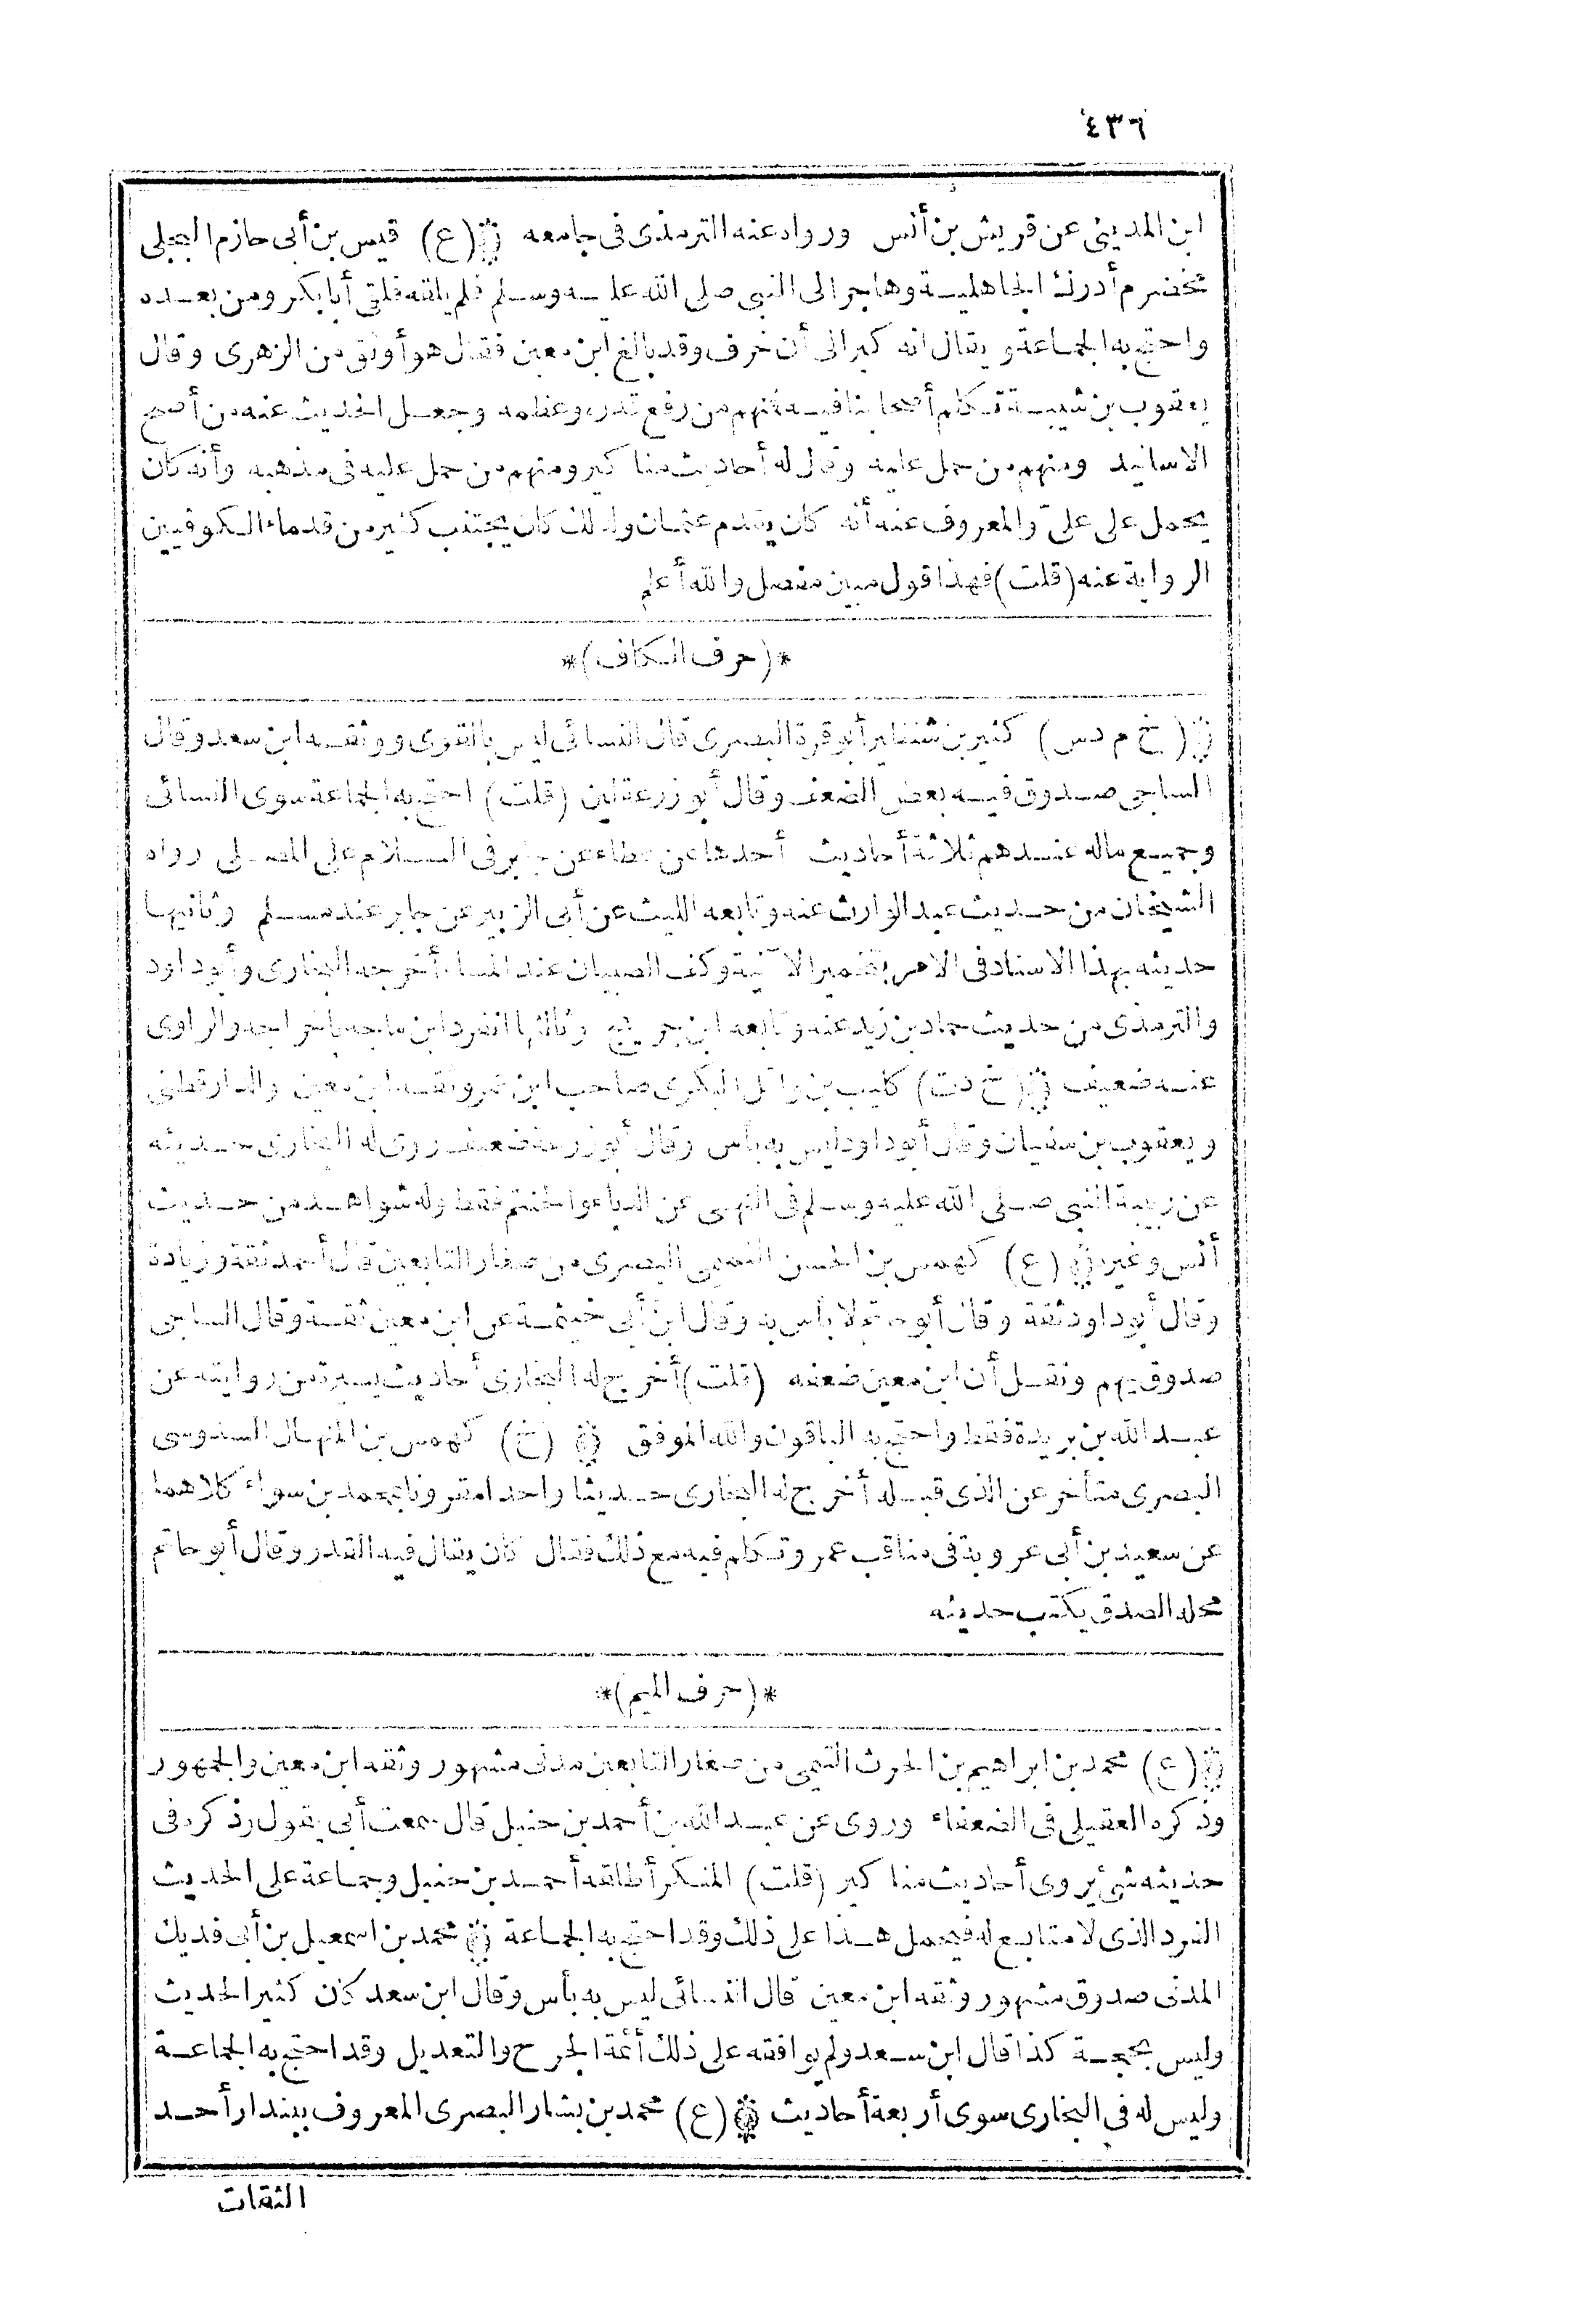 ٤٣٦
ابن المديني عن قريش بن أنس ورواه عنه الترمذى فى جامعه (ع) قيس بن أبى حازم البجلى
مخضرم أدرك الجاهلية وهاجر الى النبى صلى الله عليه وسلم فلم يلقه فلقى أبا بكر ومن بعده
واحتج به الجماعة ويقال انه كبر الى أن خرف وقد بالغ ابن معين فقال هو أوثق من الزهرى وقال
يعقوب بن شيبة تكلم أصحابنا فيه فمنهم من رفع قدره وعظمه وجعل الحديث عنه من أصح
الاسانيد ومنهم من حمل عليه وقال له أحاديث مناكير ومنهم من حمل عليه فى مذهبه وأنه كان
يحمل على علىّ والمعروف عنه أنه كان يقدم عثمان ولذلك كان يجتنب كثير من قدماء الكوفيين
الرواية عنه (قلت) فهذا قول مبين مفصل والله أعلم
*(حرف الكاف)*
(خ م د س) كثير بن شنظير أبو قرة البصرى قال النسائى ليس بالقوى ووثقه ابن سعد وقال
الساجى صدوق فيه بعض الضعف وقال أبو زرعة لين (قلت) احتج به الجماعة سوى النسائى
وجميع ماله عندهم ثلاثة أحاديث أحدها عن عطاء عن جابر فى السلام على المصلى رواه
الشيخان من حديث عبد الوارث عنه وتابعه الليث عن أبى الزبير عن جابر عند مسلم وثانيها
حديثه بهذا الاسناد فى الامر بتخمير الآنية وكف الصبيان عند المساء أخرجه البخارى وأبو داود
والترمذى من حديث حماد بن زيد عنه وتابعه ابن جريج وثالثها انفرد ابن ماجه باخراجه والراوى
عنه ضعيف (خ د ت) كليب بن وائل البكرى صاحب ابن عمر وثقه ابن معين والدارقطنى
ويعقوب بن سفيان وقال أبو داود ليس به بأس وقال أبو زرعة ضعيف روى له البخارى حديثه
عن ربيبة النبى صلى الله عليه وسلم فى النهى عن الدباء والحنتم فقط وله شواهد من حديث
أنس وغيره (ع) كهمس بن الحسن التميمى البصرى من صغار التابعين قال أحمد ثقة وزيادة
وقال أبو داود ثقة وقال أبو حاتم لا بأس به وقال ابن أبى خيثمة عن ابن معين ثقة وقال الساجى
صدوق يهم ونقل أن ابن معين ضعفه (قلت) أخرج له البخارى أحاديث يسيرة من روايته عن
عبد الله بن بريدة فقط واحتج به الباقون والله الموفق (خ) كهمس بن المنهال السدوسى
البصرى متأخر عن الذى قبله أخرج له البخارى حديثا واحدا مقرونا بمحمد بن سواء كلاهما
عن سعيد بن أبى عروبة فى مناقب عمر وتكلم فيه مع ذلك فقال كان يقال فيه القدر وقال أبو حاتم
محله الصدق يكتب حديثه
*(حرف الميم)*
(ع) محمد بن ابراهيم بن الحرث التيمى من صغار التابعين مدنى مشهور وثقه ابن معين والجمهور
وذكره العقيلى فى الضعفاء وروى عن عبد الله بن أحمد بن حنبل قال سمعت أبى يقول وذكره فى
حديثه شئ يروى أحاديث مناكير (قلت) المنكر أطلقه أحمد بن حنبل وجماعة على الحديث
الفرد الذى لا متابع له فيحمل هذا على ذلك وقد احتج به الجماعة محمد بن اسمعيل بن أبى فديك
المدنى صدوق مشهور وثقه ابن معين قال النسائى ليس به بأس وقال ابن سعد كان كثير الحديث
وليس بحجة كذا قال ابن سعد ولم يوافقه على ذلك أئمة الجرح والتعديل وقد احتج به الجماعة
وليس له فى البخارى سوى أربعة أحاديث (ع) محمد بن بشار البصرى المعروف ببندار أحد
الثقات